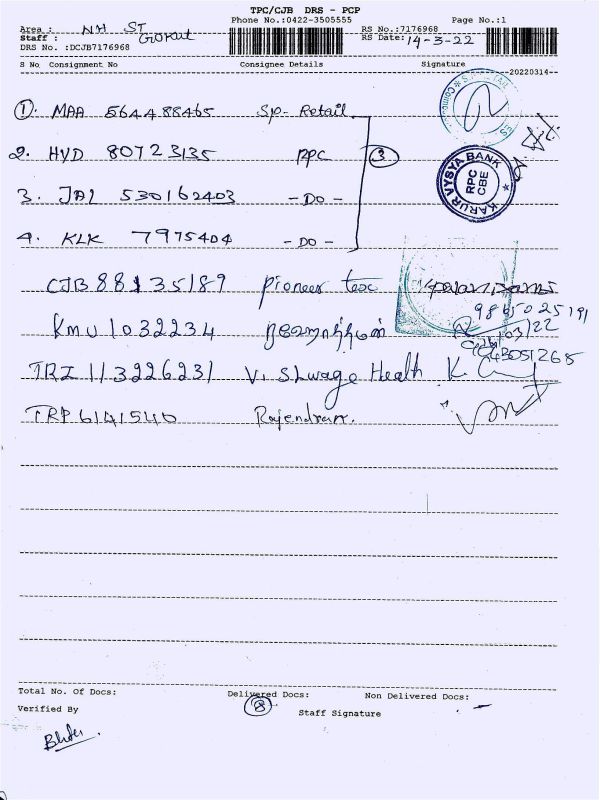 TPC/CJB DRS - PCP
Phone No.:0422-3505555 Page No.:1
Area : NH ST RS No.:7176968
Staff : Gokul RS Date: 14-3-22
DRS No. :DCJB7176968
S No Consignment No Consignee Details Signature
20220314
1. MAA 564488465 Sp- Retail
2. HYD 80723135 RPC 3
3. JAI 530162403 - DO -
4. KLK 7975404 - DO -
KARUR VYSYA BANK
RPC
CBE
CJB 88135189 Pioneer tex
98650 25191
KMU 1032234
TRZ 113226231 V. Shwage Health K.
TRP 6141540 Rajendran.
Total No. Of Docs: Delivered Docs: 8 Non Delivered Docs:
Verified By Staff Signature